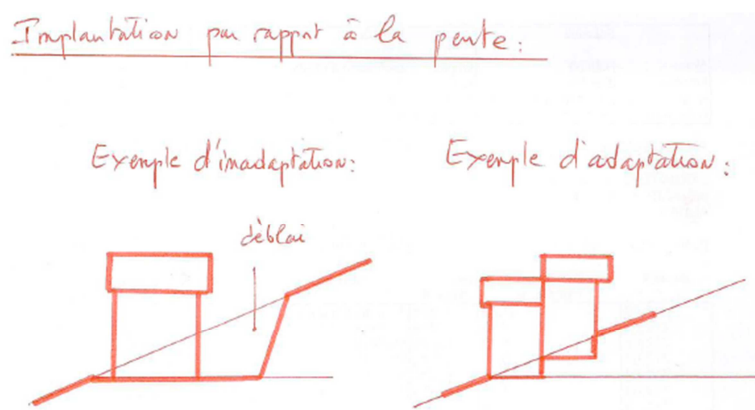 Implantation par rapport à la pente :
Exemple d'inadaptation :
Exemple d'adaptation :
déblai